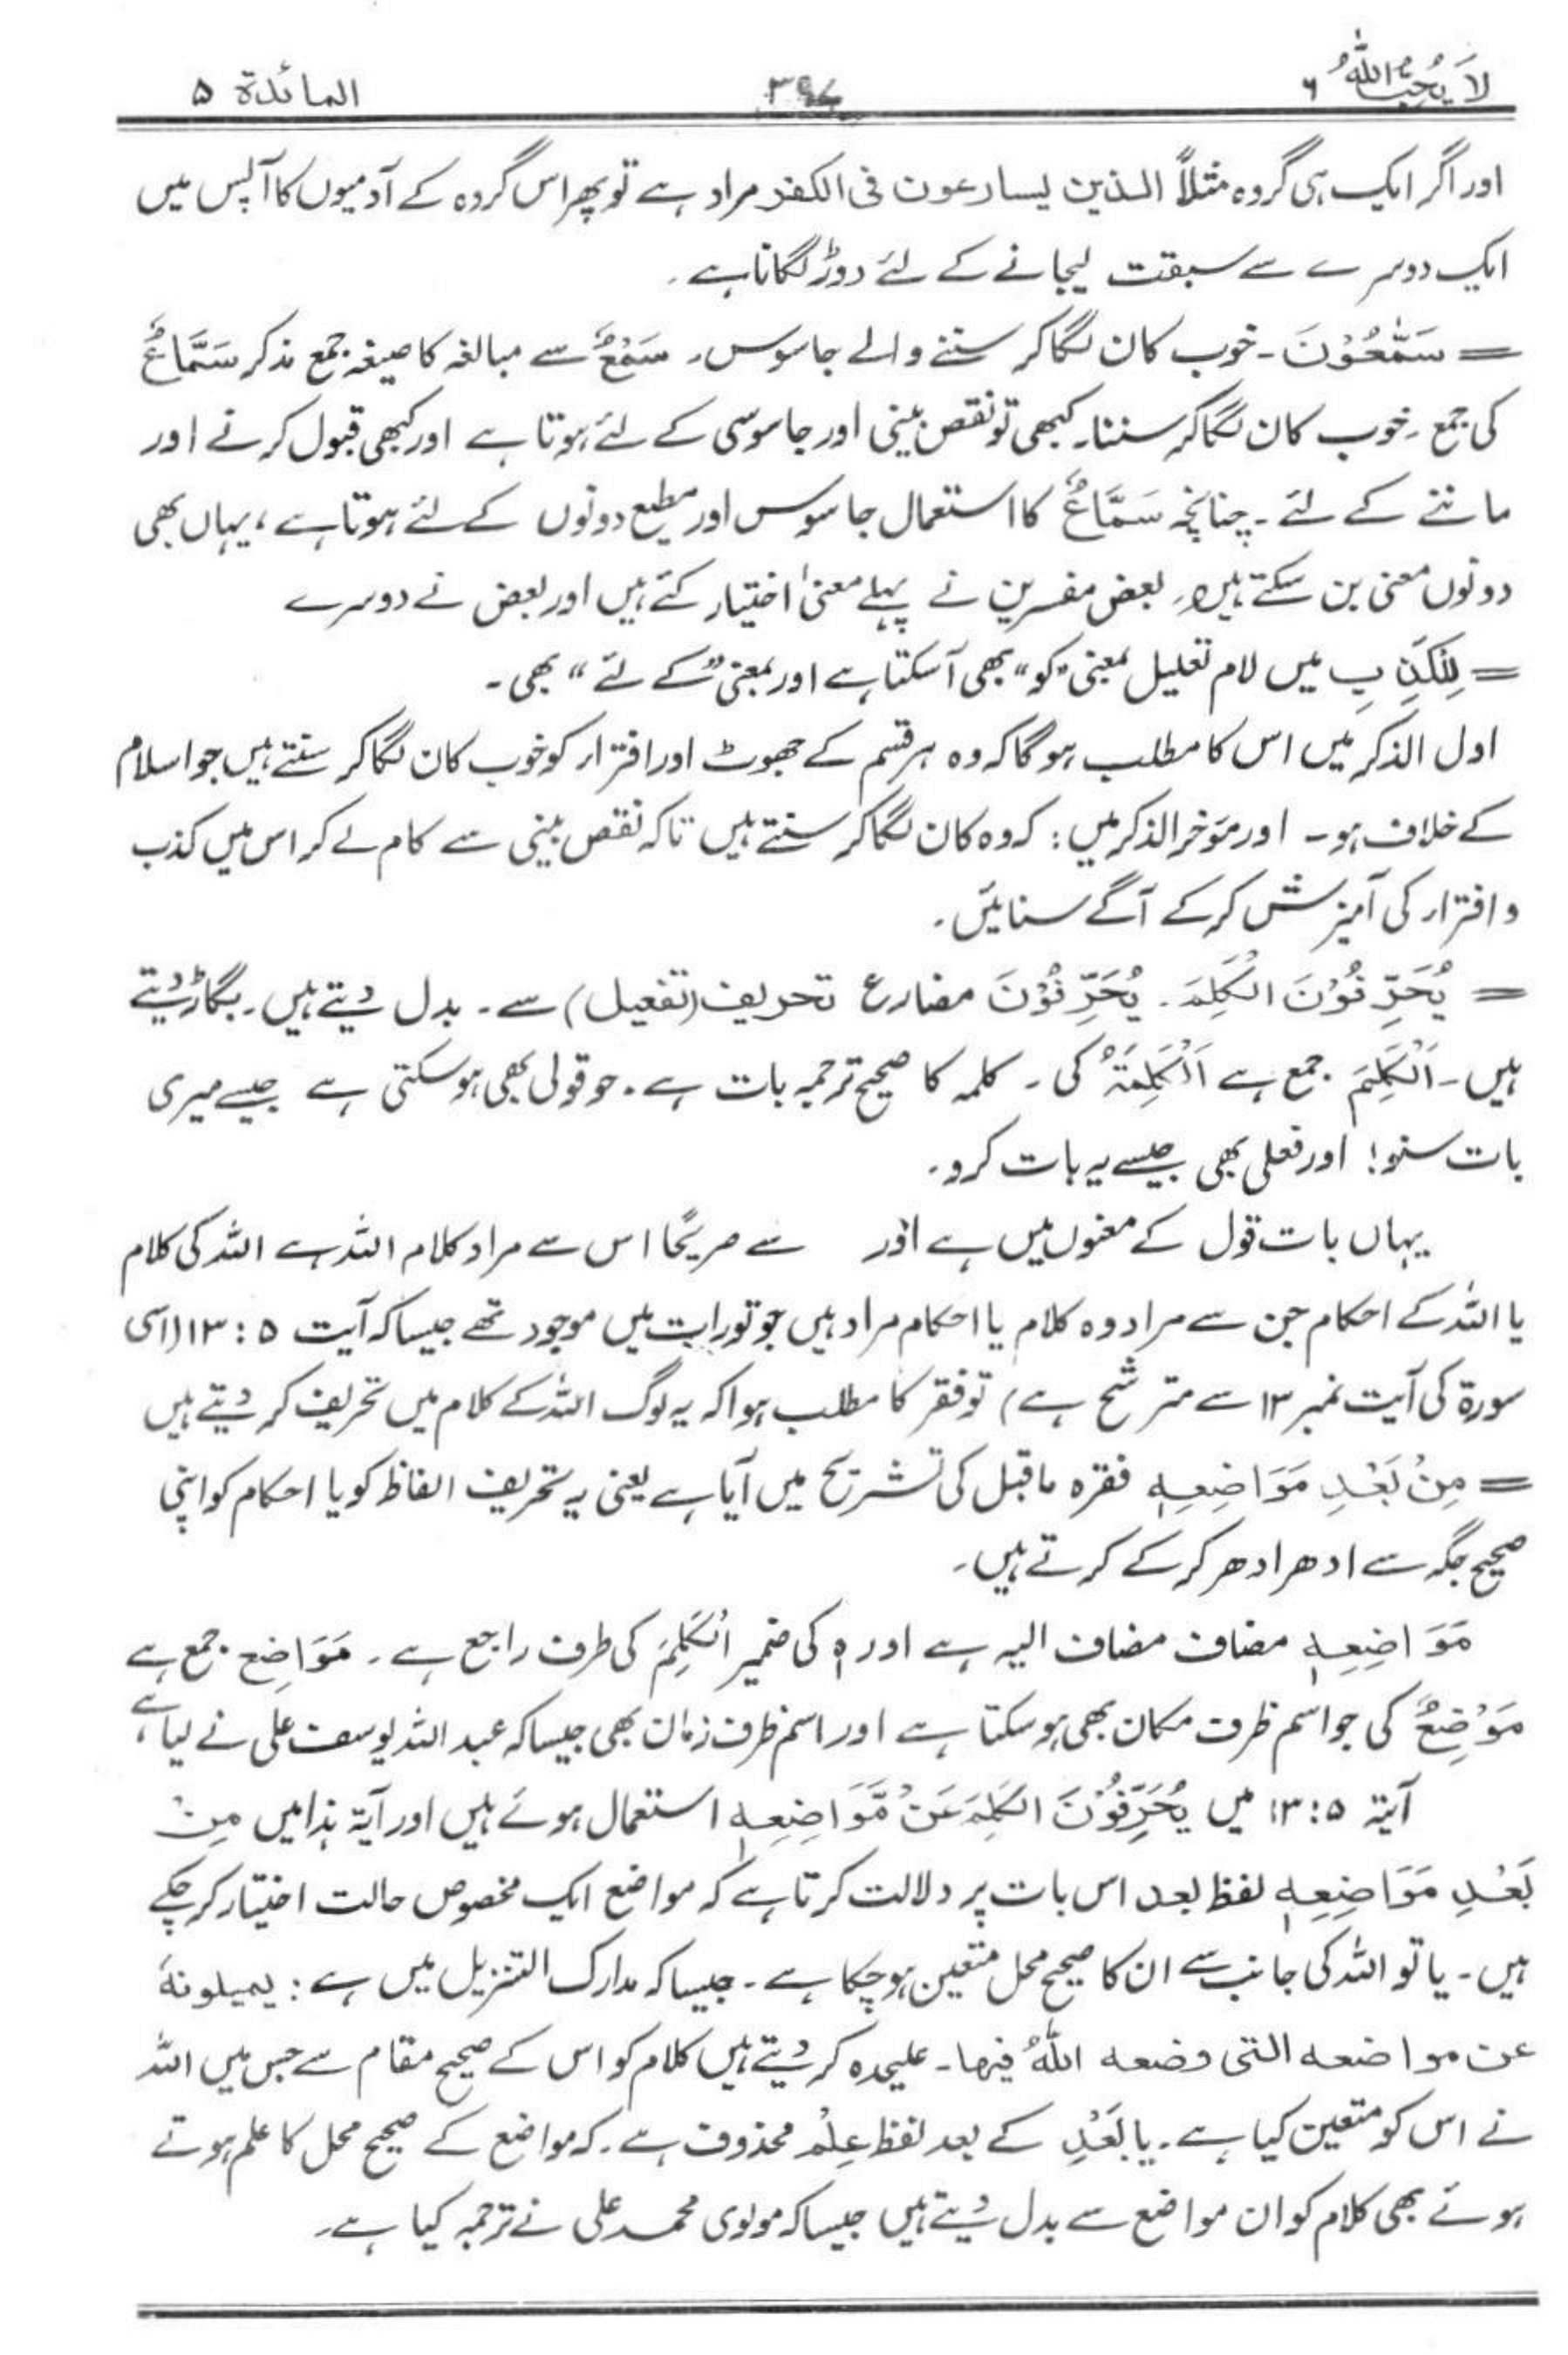 لَا يُحِبُّ اللّٰهُ ۶
۳۹۷
المائدة ۵
اور اگر ایک ہی گروہ مثلاً الذین یسارعون فی الکفر مراد ہے تو پھر اس گروہ کے آدمیوں کا آپس میں
ایک دوسرے سے سبقت لیجانے کے لئے دوڑ لگانا ہے۔
= سَمّٰعُوْنَ۔ خوب کان لگا کر سننے والے جاسوس۔ سَمْعٌ سے مبالغہ کا صیغہ جمع مذکر سَمَّاعٌ
کی جمع۔ خوب کان لگا کر سننا۔ کبھی تو نقص بینی اور جاسوسی کے لئے ہوتا ہے اور کبھی قبول کرنے اور
ماننے کے لئے۔ چنانچہ سَمَّاعٌ کا استعمال جاسوس اور مطیع دونوں کے لئے ہوتا ہے، یہاں بھی
دونوں معنی بن سکتے ہیں۔ بعض مفسرین نے پہلے معنیٰ اختیار کئے ہیں اور بعض نے دوسرے
= لِلْكَذِبِ میں لام تعلیل بمعنی "کو" بھی آسکتا ہے اور بمعنی "کے لئے" بھی۔
اول الذکر میں اس کا مطلب ہوگا کہ وہ ہر قسم کے جھوٹ اور افترار کو خوب کان لگا کر سنتے ہیں جو اسلام
کے خلاف ہو۔ اور مؤخر الذکر میں: کہ وہ کان لگا کر سنتے ہیں تاکہ نقص بینی سے کام لے کر اس میں کذب
و افترار کی آمیزش کر کے آگے سنائیں۔
= يُحَرِّفُوْنَ الْكَلِمَ۔ يُحَرِّفُوْنَ مضارع تحریف (تفعیل) سے۔ بدل دیتے ہیں۔ بگاڑ دیتے
ہیں۔ اَلْكَلِمَ جمع ہے اَلْكَلِمَةُ کی۔ کلمہ کا صحیح ترجمہ بات ہے۔ جو قولی بھی ہو سکتی ہے جیسے میری
بات سنو! اور فعلی بھی جیسے یہ بات کرو۔
یہاں بات قول کے معنوں میں ہے اور سے صریحًا اس سے مراد کلام اللہ ہے اللہ کی کلام
یا اللہ کے احکام جن سے مراد وہ کلام یا احکام مراد ہیں جو تورات میں موجود تھے جیسا کہ آیت ۵ : ۱۳ (اسی
سورۃ کی آیت نمبر ۱۳ سے مترشح ہے) تو فقر کا مطلب ہوا کہ یہ لوگ اللہ کے کلام میں تحریف کر دیتے ہیں
= مِنْ بَعْدِ مَوَاضِعِهٖ فقرہ ماقبل کی تشریح میں آیا ہے یعنی یہ تحریف الفاظ کو یا احکام کو اپنی
صحیح جگہ سے ادھر ادھر کر کے کرتے ہیں۔
مَوَاضِعِهٖ مضاف مضاف الیہ ہے اور ہٖ کی ضمیر الْكَلِمَ کی طرف راجع ہے۔ مَوَاضِع جمع ہے
مَوْضِعٌ کی جو اسم ظرف مکان بھی ہو سکتا ہے اور اسم ظرف زمان بھی جیسا کہ عبد اللہ یوسف علی نے لیا ہے،
آیۃ ۵ : ۱۳ میں يُحَرِّفُوْنَ الْكَلِمَ عَنْ مَّوَاضِعِهٖ استعمال ہوئے ہیں اور آیۃ ہذا میں مِنْ
بَعْدِ مَوَاضِعِهٖ لفظ بعد اس بات پر دلالت کرتا ہے کہ مواضع ایک مخصوص حالت اختیار کر چکے
ہیں۔ یا تو اللہ کی جانب سے ان کا صحیح محل متعین ہو چکا ہے۔ جیسا کہ مدارک التنزیل میں ہے : یمیلونہٗ
عن مواضعہ التی وضعہ اللّٰهُ فیہا۔ علیحدہ کر دیتے ہیں کلام کو اس کے صحیح مقام سے جس میں اللہ
نے اس کو متعین کیا ہے۔ یا بَعْدِ کے بعد لفظ عِلْمُ محذوف ہے۔ کہ مواضع کے صحیح محل کا علم ہوتے
ہوئے بھی کلام کو ان مواضع سے بدل دیتے ہیں جیسا کہ مولوی محمد علی نے ترجمہ کیا ہے۔